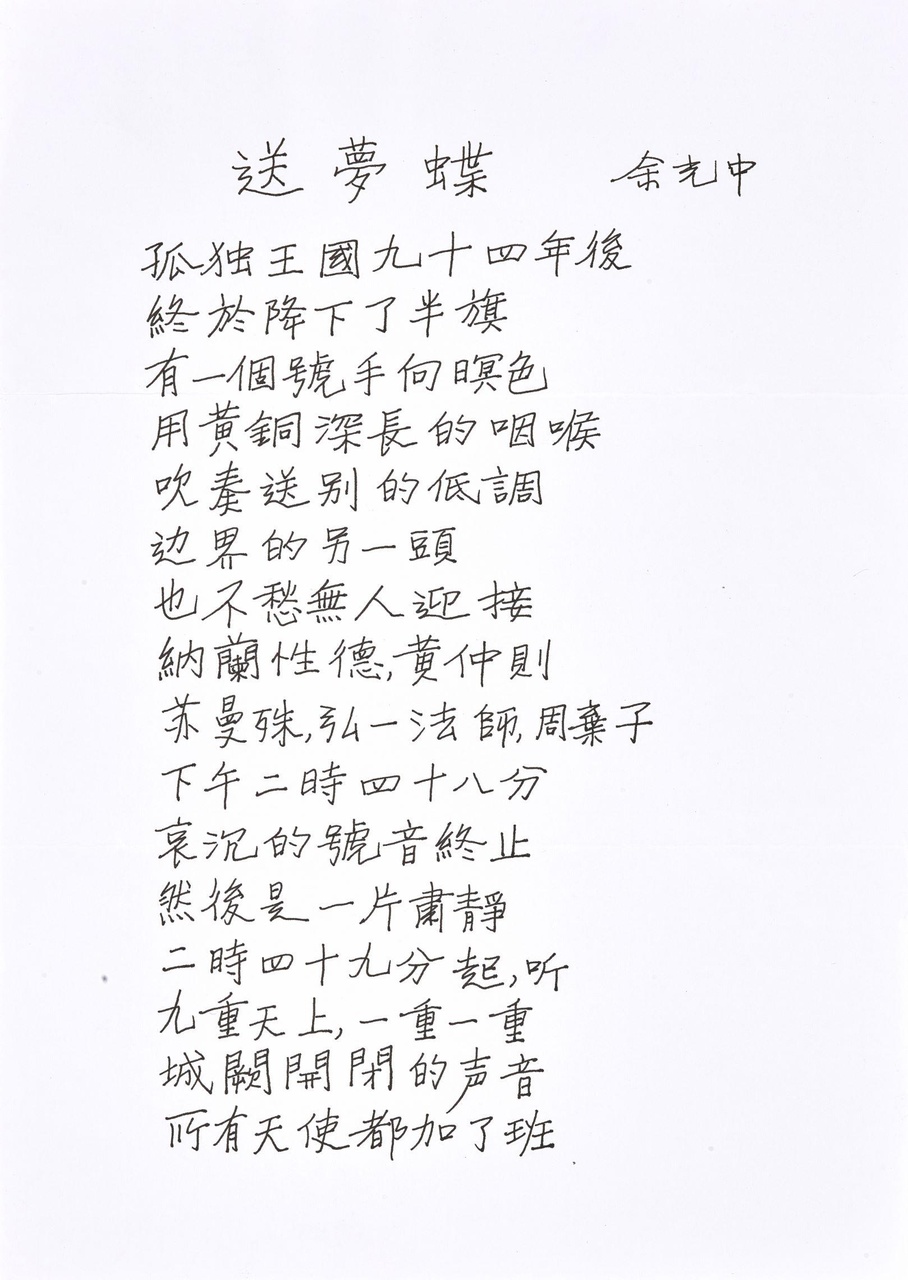 送夢蝶 余光中
孤独王國九十四年後
終於降下了半旗
有一個號手向暝色
用黃銅深長的咽喉
吹奏送別的低調
边界的另一頭
也不愁無人迎接
納蘭性德,黃仲則
苏曼殊,弘一法師,周棄子
下午二時四十八分
哀沉的號音終止
然後是一片肅靜
二時四十九分起,听
九重天上,一重一重
城闕開閉的声音
所有天使都加了班